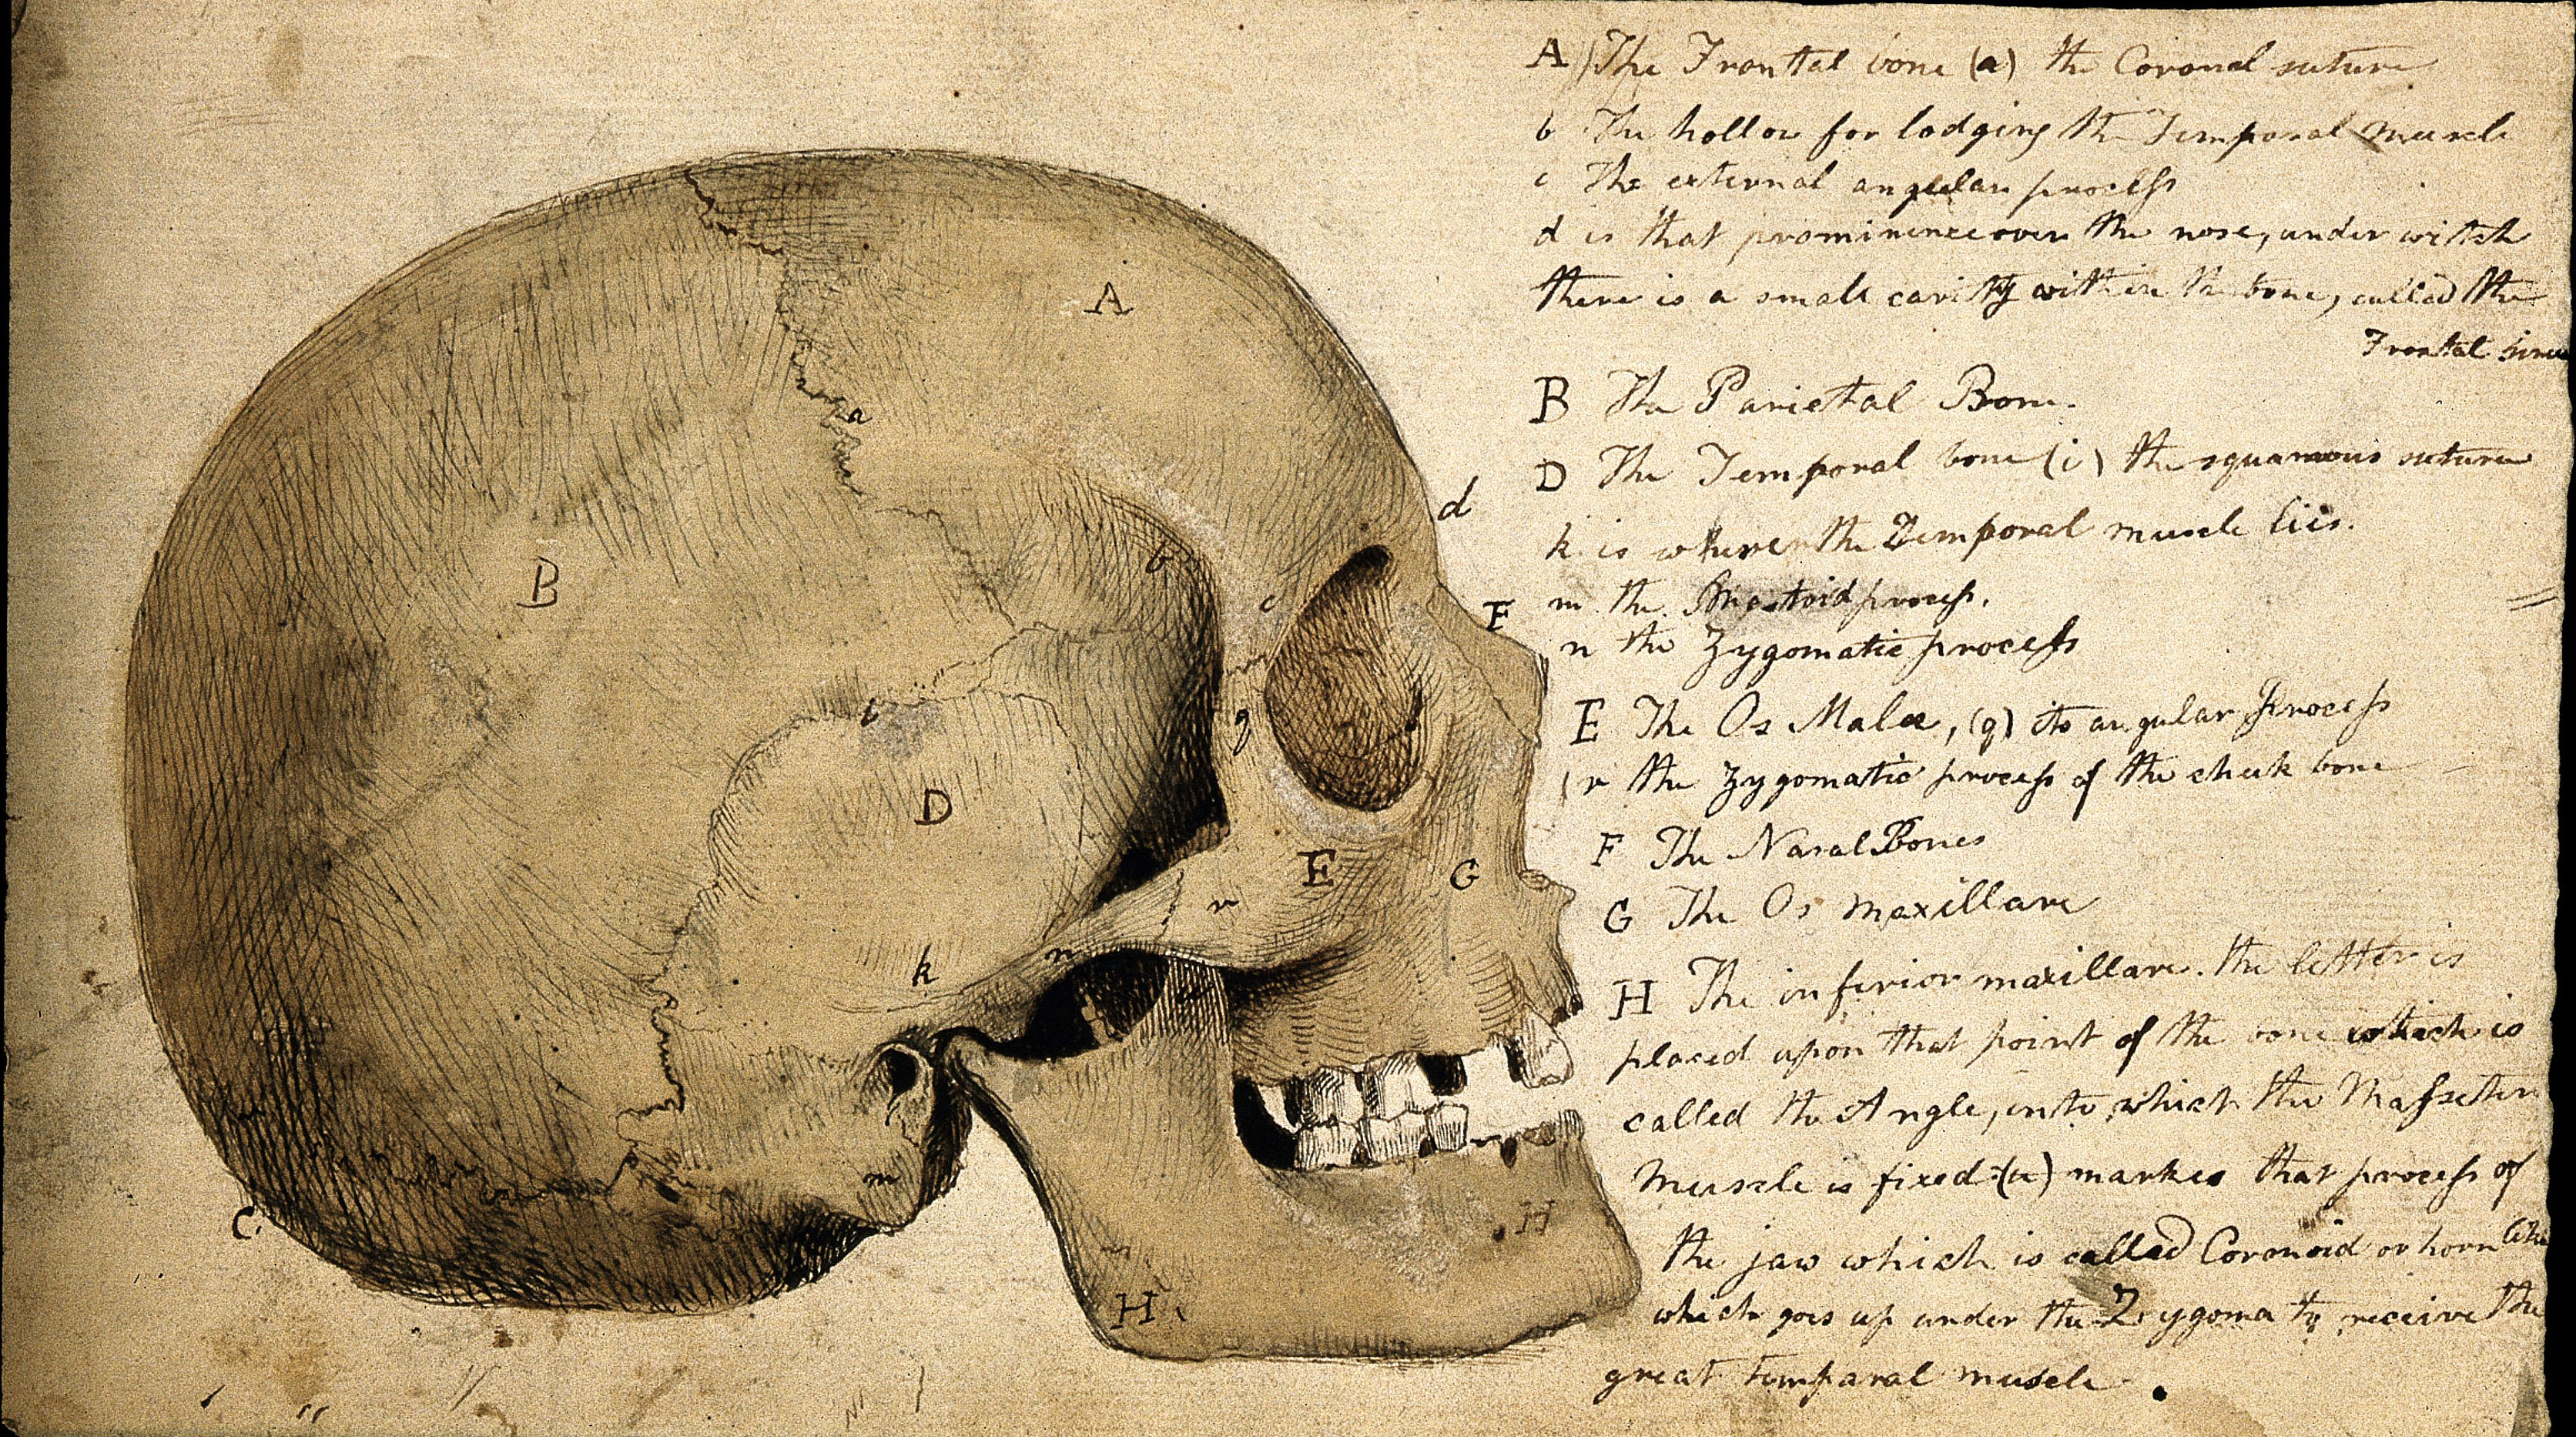 A The Fronttal bone (a) the Coronal suture
b The hollow for lodging the Temporal muscle
c The external angular process
d is that prominence over the nose, under witch
there is a small cavitty within the bone, called the
Frontal sinu
B The Parietal Bone.
D The Temporal bone (i) the squamous suture
k is where the Temporal muscle lies.
m the Mastoid process.
n the Zygomatic process
E The Os Malae, (q) its angular Process
(r the Zygomatic process of the cheek bone
F The Nasal Bones
G The Os maxillare
H The inferior maxillare. the letter is
placed upon that point of the bone which is
called the Angle, into which the Masseter
Muscle is fixed (u) markes that process of
the jaw which is called Coronoid or horn like
which goes up under the Zygoma to receive the
great temparal muscle.
A
a
d
b
B
c
F
i
q
D
E
G
r
n
k
u
m
C.
H
H